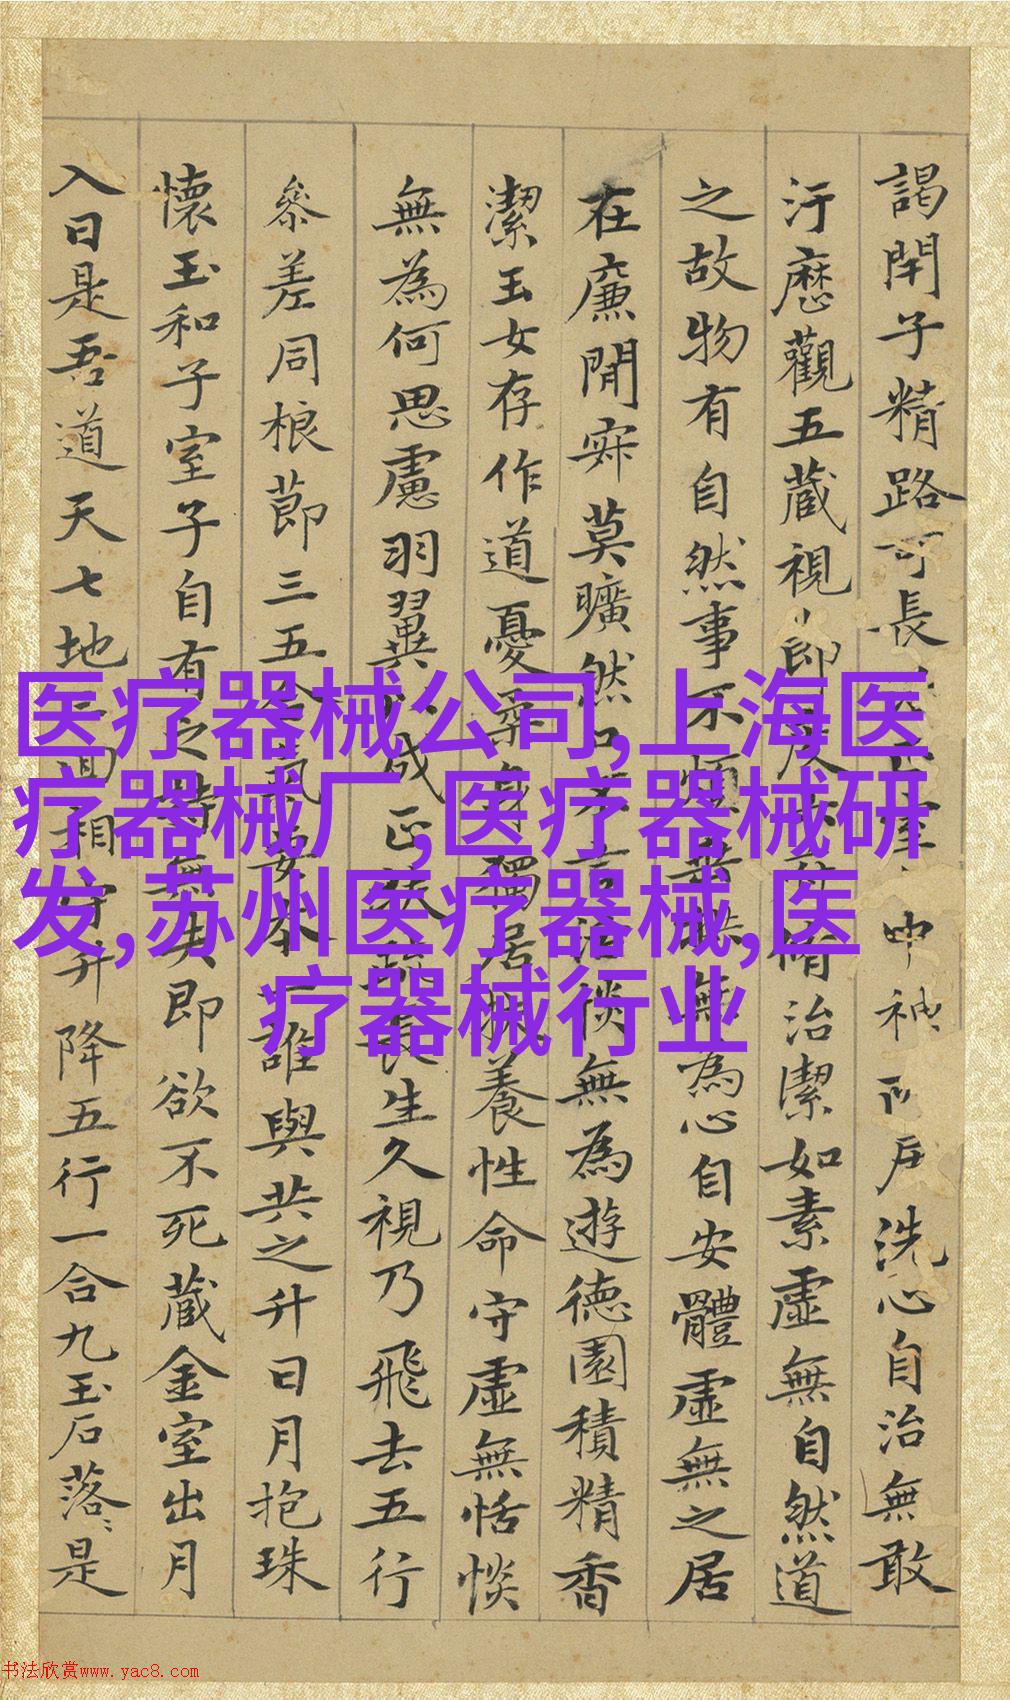 謁閇子精路可長中神戶洗心自治無敢
汙歷觀五藏視節度脩治潔如素虛無自然道
之故物有自然事不煩無為心自安體虛無之居
在廉閒寂莫曠然口不言恬惔無為遊德園積精香
潔玉女存作道憂柔身獨居扶養性命守虛無恬惔
無為何思慮羽翼以成正扶疏長生久視乃飛去五行
參差同根節三五合氣要本一誰與共之升日月抱珠
懷玉和子室子自有之持無失即欲不死藏金室出月
入日是吾道天七地三回相守升降五行一合九玉石落〻是
医疗器械公司,上海医
疗器械厂,医疗器械研
发,苏州医疗器械,医
疗器械行业
书法欣赏www.yac8.com